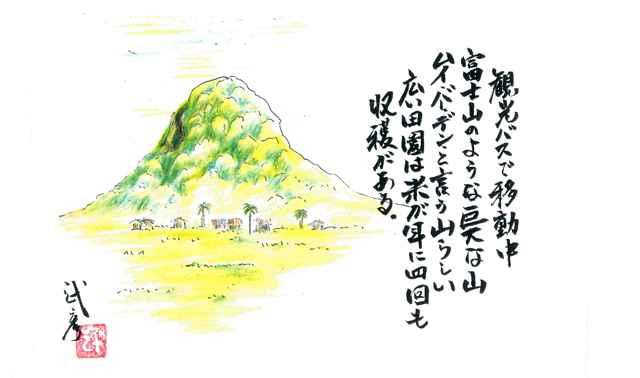 観光バスで移動中
富士山のような巨大な山
ハイバーデンと言う山らしい
広い田園は米が年に四回も
収穫がある。
武彦